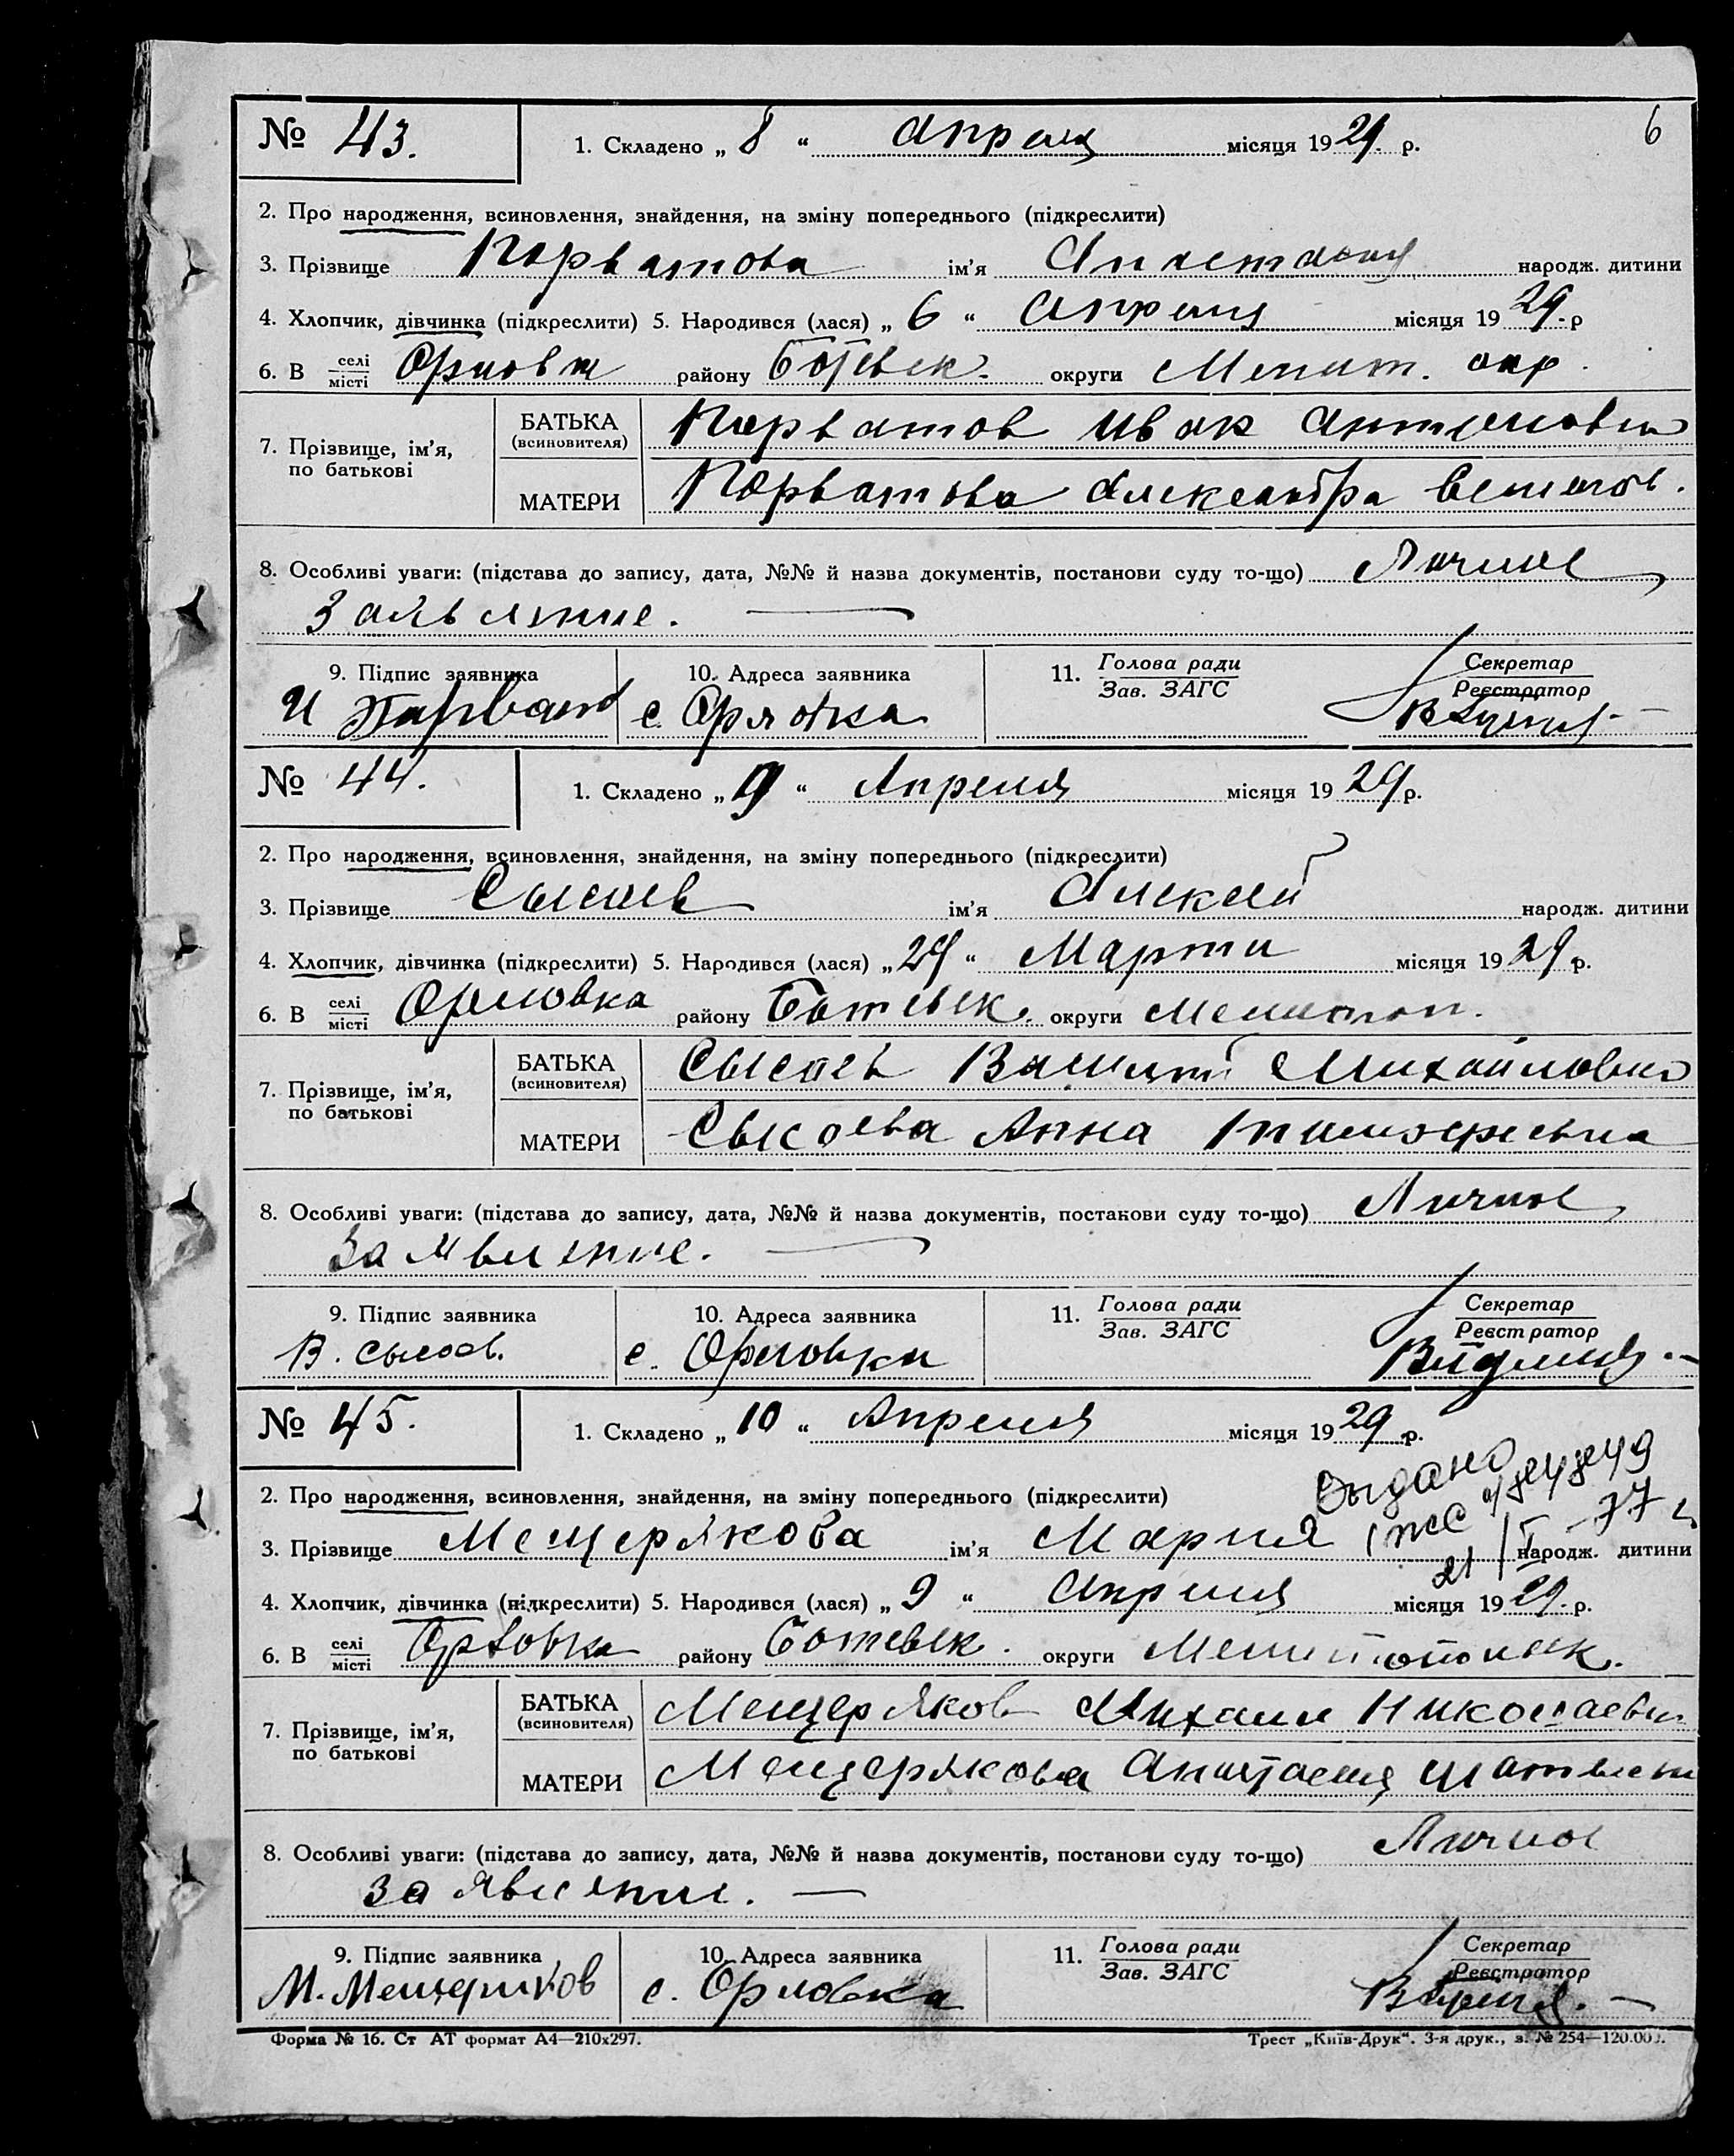 6
№ 43. 1. Складено „ 8 “ Апреля місяця 1929. р.
2. Про народження, всиновлення, знайдення, на зміну попереднього (підкреслити)
3. Прізвище ім'я Анастасия народж. дитини
4. Хлопчик, дівчинка (підкреслити) 5. Народився (лася) „ 6 “ Апреля місяця 1929. р
6. В селі місті Орловка району Ботевск. округи Мелит. окр.
7. Прізвище, ім'я, по батькові
БАТЬКА (всиновителя) Иван
МАТЕРИ Александра
8. Особливі уваги: (підстава до запису, дата, №№ й назва документів, постанови суду то-що) Личное
Заявление.
9. Підпис заявника 10. Адреса заявника 11. Голова ради Зав. ЗАГС Секретар Реєстратор
И с. Орловка
№ 44. 1. Складено „ 9 “ Апреля місяця 1929 р.
2. Про народження, всиновлення, знайдення, на зміну попереднього (підкреслити)
3. Прізвище Сысоев ім'я Алексей народж. дитини
4. Хлопчик, дівчинка (підкреслити) 5. Народився (лася) „ 29 “ Марта місяця 1929 р.
6. В селі місті Орловка району Ботевск. округи Мелитоп.
7. Прізвище, ім'я, по батькові
БАТЬКА (всиновителя) Сысоев Василий Михайлович
МАТЕРИ Сысоева Анна
8. Особливі уваги: (підстава до запису, дата, №№ й назва документів, постанови суду то-що) Личное
Заявление.
9. Підпис заявника 10. Адреса заявника 11. Голова ради Зав. ЗАГС Секретар Реєстратор
В. Сысоев. с. Орловка
№ 45. 1. Складено „ 10 “ Апреля місяця 1929 р.
Выдано
2. Про народження, всиновлення, знайдення, на зміну попереднього (підкреслити)
3. Прізвище Мещерякова ім'я Мария народж. дитини
4. Хлопчик, дівчинка (підкреслити) 5. Народився (лася) „ 9 “ Апреля місяця 1929. р.
6. В селі місті Орловка району Ботевск. округи Мелитопольск.
7. Прізвище, ім'я, по батькові
БАТЬКА (всиновителя) Мещеряков Михаил Николаевич
МАТЕРИ Мещерякова Анастасия
8. Особливі уваги: (підстава до запису, дата, №№ й назва документів, постанови суду то-що) Личное
Заявление.
9. Підпис заявника 10. Адреса заявника 11. Голова ради Зав. ЗАГС Секретар Реєстратор
М. Мещеряков с. Орловка
Форма № 16. Ст АТ формат А4—210х297. Трест „Київ-Друк“. 3-я друк., з. № 254—120.000.